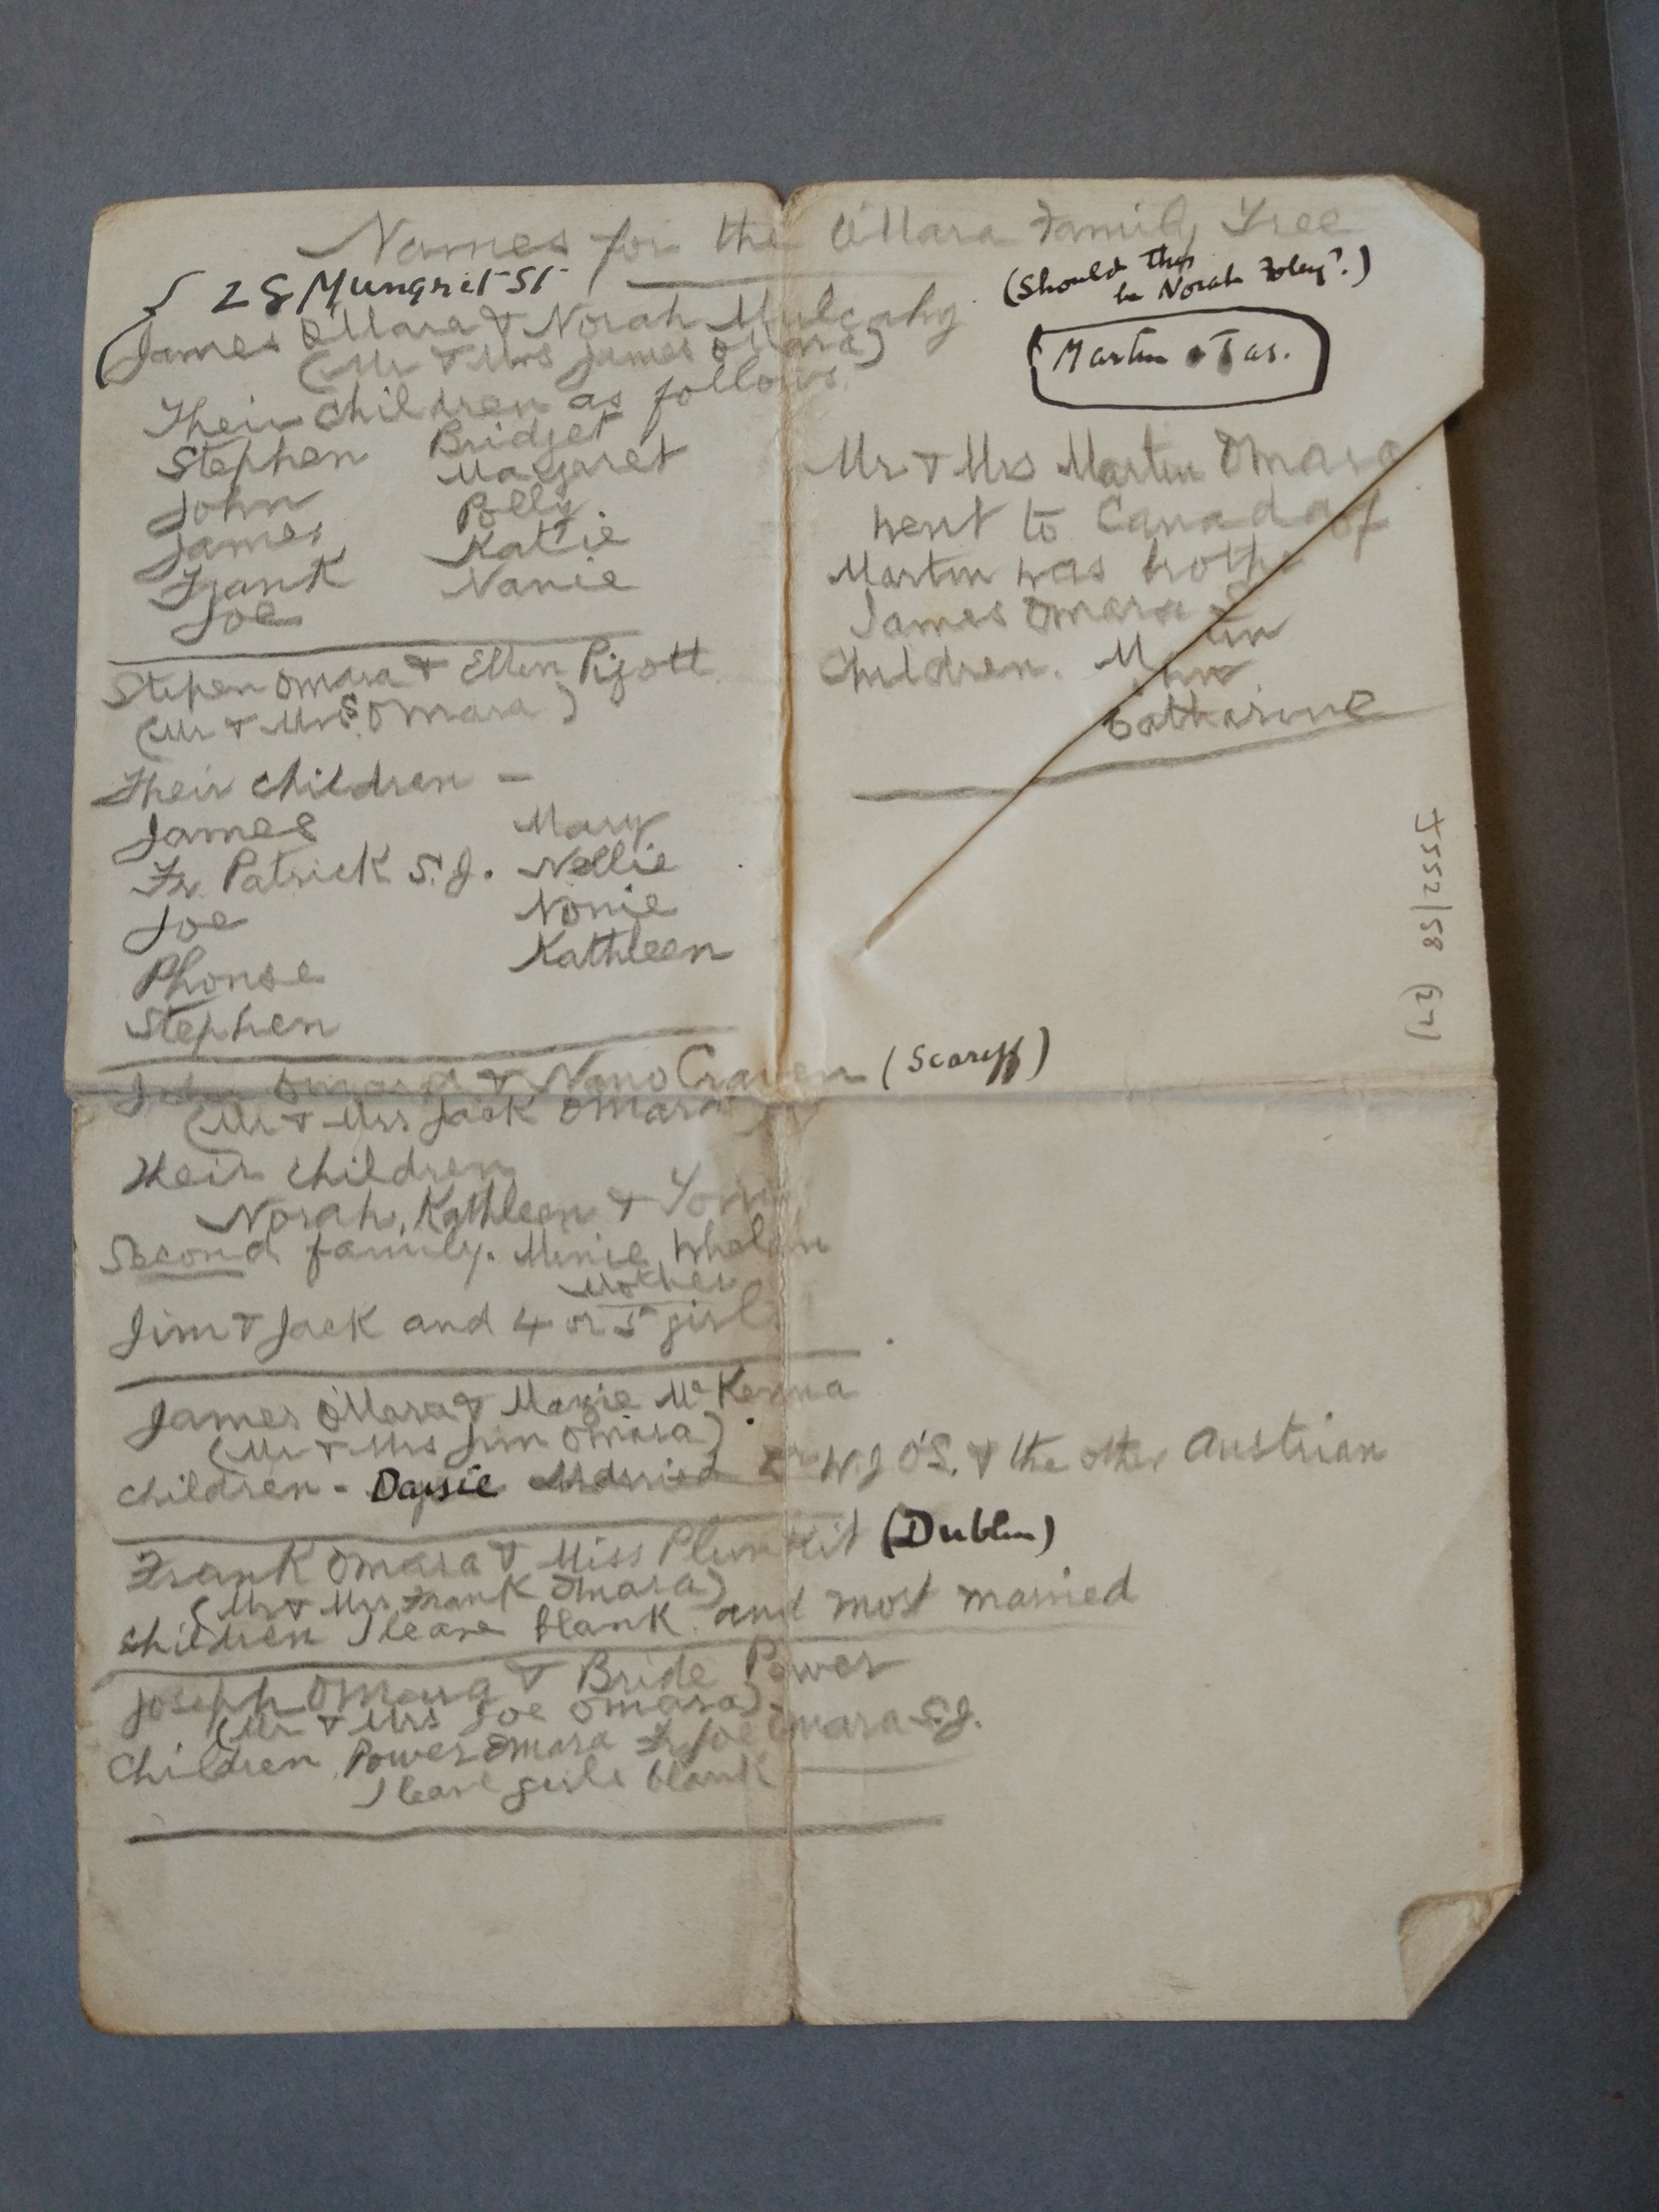 Names for the O'Mara Family Tree
28 Mungret St
(Should this
be Norah Foley?)
James O'Mara & Norah Mulcahy
(Mr & Mrs James O'Mara)
Martin & Jas.
Their Children as follows
Stephen Bridget
John Margaret
James Polly
Frank Katie
Joe Nanie
Mr & Mrs Martin Omara
went to Canada
Martin was brother of
James Omara
Children. Martin
Catharine
Stepen Omara & Ellen Pigott
(Mr & Mrs S. Omara)
Their Children -
James Mary
Fr. Patrick S.J. Nellie
Joe Nonie
Phonse Kathleen
Stephen
John Omara & Nano Craven (Scariff)
(Mr & Mrs Jack Omara)
Their Children
Norah, Kathleen &
Second family. Minie Whelan
Mother
Jim & Jack and 4 or 5 girls
James O'Mara & Mazie McKenna
(Mr & Mrs Jim Omara)
Children - Daysie Married Dr W.J O'S. & the other Austrian
Frank Omara & Miss Plunkit (Dublin)
(Mr & Mrs Frank Omara)
Children I leave blank. and most married
Joseph Omara & Bride Power
(Mr & Mrs Joe Omara).
Children Power Omara Fr Joe Omara S.J.
I leave girls blank